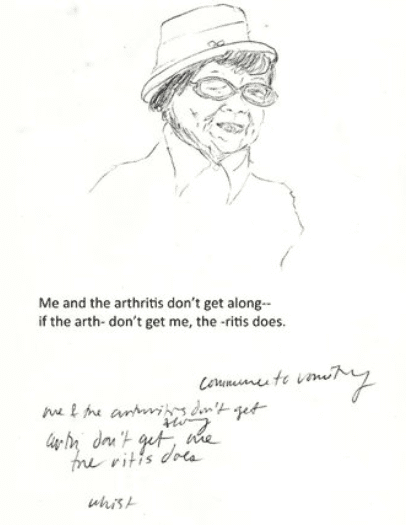 Me and the arthritis don't get along--
if the arth- don't get me, the -ritis does.
commence to vomiting
me & the arthritis don't get
along
arth don't get me
the ritis does
whist